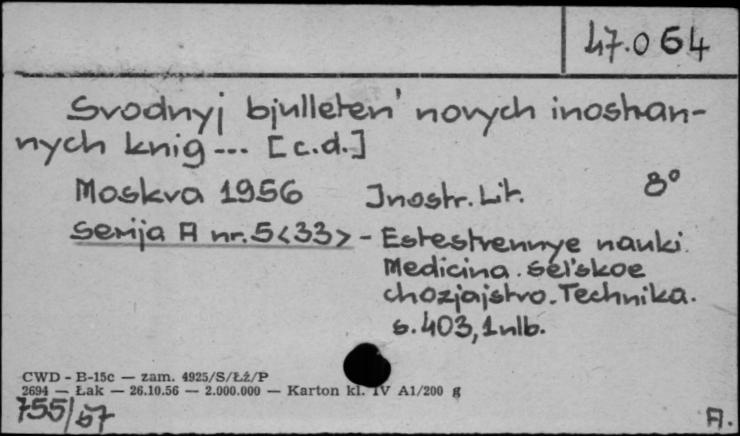 47.064
Svodnyj bjulleten' novych inostran-
nych knig... [c.d.]
Moskva 1956 Inostr. Lit. 8°
Serija A nr. 5<33> - Estestvennye nauki.
Medicina. Sel'skoe
chozjajstvo. Technika.
s. 403, 1nlb.
CWD - B-15c — zam. 4925/S/Łż/P
2694 — Łak — 26.10.56 — 2.000.000 — Karton kl. IV A1/200 g
755/57
A.